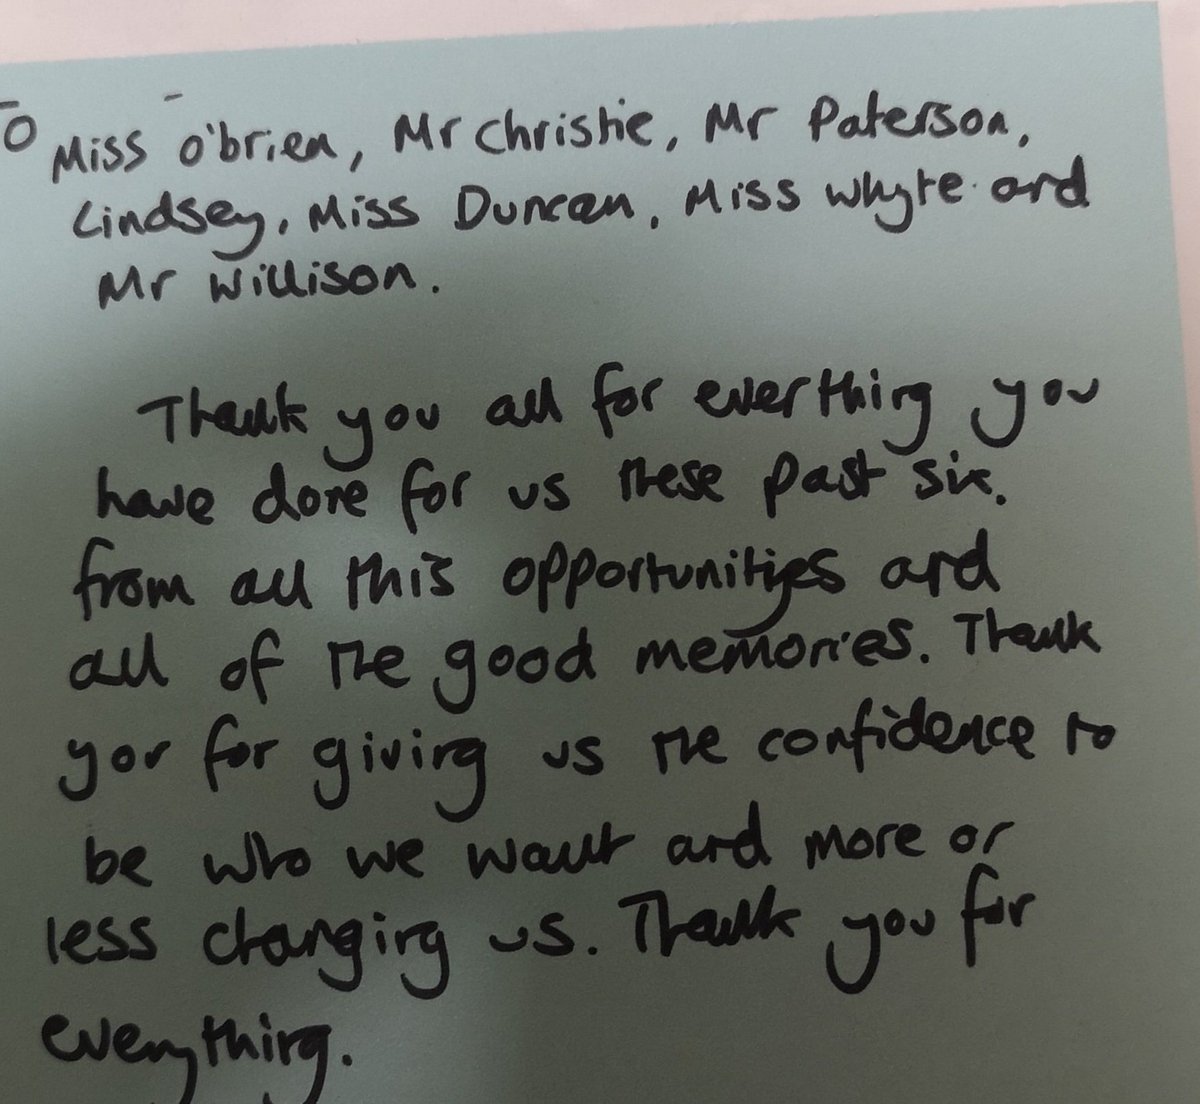 To Miss o'brien, Mr Christie, Mr Paterson,
Lindsey, Miss Duncan, Miss Whyte and
Mr Willison.
Thank you all for everthing you
have done for us these past six.
from all this opportunities and
all of the good memories. Thank
you for giving us the confidence to
be who we want and more or
less changing us. Thank you for
everything.